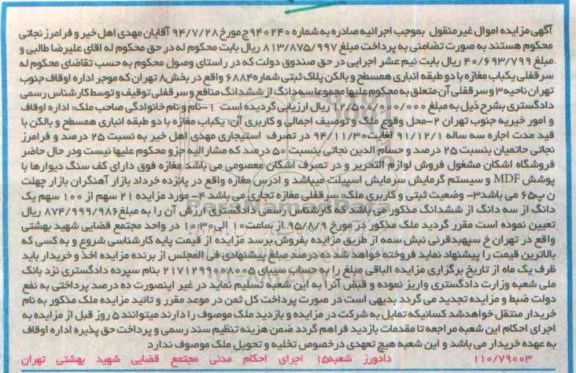 آگهی مزایده اموال غیرمنقول بموجب اجرائیه صادره به شماره ۹۴۰۲۴۰ ج مورخ ۹۴/۷/۲۸ آقایان مهدی اهل خیر و فرامرز نجاتی
محکوم هستند به صورت تضامنی به پرداخت مبلغ ۸۱۳/۸۷۵/۹۹۷ ریال بابت محکوم له در حق محکوم له اقای علیرضا طالبی و
مبلغ ۴۰/۶۹۳/۷۹۹ ریال بابت نیم عشر اجرایی در حق صندوق دولت که در راستای وصول محکوم به حسب تقاضای محکوم له
سرقفلی یکباب مغازه با دو طبقه انباری همسطح و بالکن پلاک ثبتی شماره ۶۸۸۴ واقع در بخش ۸ تهران که موجر اداره اوقاف جنوب
تهران ناحیه ۳ و سرقفلی آن متعلق به محکوم علیها مجموعا سه دانگ از ششدانگ منافع و سرقفلی توقیف و توسط کارشناس رسمی
دادگستری بشرح ذیل به مبلغ ۱۲/۵۰۰/۰۰۰/۰۰۰ ریال ارزیابی گردیده است ۱-نام و نام خانوادگی صاحب ملک: اداره اوقاف
و امور خیریه جنوب تهران ۲-محل وقوع ملک و توصیف اجمالی و کاربری آن: یکباب مغازه با دو طبقه انباری همسطح و بالکن با
قید مدت اجاره سه ساله ۹۱/۱۲/۱ لغایت ۹۴/۱۱/۳۰ در تصرف استیجاری مهدی اهل خیر به نسبت ۲۵ درصد و فرامرز
نجاتی حاتمیان بنسبت ۲۵ درصد و حسام الدین نجاتی بنسبت ۵۰ درصد که مشار الیه جزو محکوم علیها نیست ودر حال حاضر
فروشگاه اشکان مشغول فروش لوازم التحریر و در تصرف اشکان معصومی می باشد مغازه فوق دارای کف سنگ دیوارها با
پوشش MDF و سیستم گرمایش سرمایش اسپیلت میباشد و ادرس مغازه واقع در پانزده خرداد بازار آهنگران بازار چهلت
ن پ۶۵ می باشد ۳- وضعیت ثبتی و کاربری ملک: سرقفلی مغازه تجاری می باشد ۴- مورد مزایده ۲۱ سهم از ۱۰۰ سهم یک
دانگ از سه دانگ از ششدانگ مذکور می باشد که کارشناس رسمی دادگستری ارزش آن را به مبلغ ۸۷۴/۹۹۹/۹۸۶ ریال
تعیین نموده است مقرر گردید ملک مذکور در مورخ ۹۵/۸/۹ از ساعت ۱۰ الی ۱۰:۳۰ در واحد مجتمع قضایی شهید بهشتی
واقع در تهران خ سپهبدقرنی نبش سمیه از طریق مزایده بفروش برسد مزایده از قیمت پایه کارشناسی شروع و به کسی که
بالاترین قیمت را پیشنهاد نماید فروخته خواهد شد ۱۰ درصد مبلغ پیشنهادی فی المجلس از برنده مزایده اخذ و خریدار باید
ظرف یک ماه از تاریخ برگزاری مزایده الباقی مبلغ را به حساب سیبای ۲۱۷۱۲۹۹۰۰۸۰۰۵ بنام سپرده دادگستری نزد بانک
ملی شعبه وزارت دادگستری واریز نموده و قبض آنرا به این شعبه تسلیم نماید در غیر اینصورت ده درصد پرداختی به نفع
دولت ضبط و مزایده تجدید می گردد بدیهی است در صورت پرداخت کل ثمن در موعد مقرر و تائید مزایده ملک مذکور به نام
خریدار منتقل خواهدشد کسانیکه تمایل به شرکت در مزایده و بازدید ملک موصوف را دارند میتوانند ۵ روز قبل از مزایده به
اجرای احکام این شعبه مراجعه تا مقدمات بازدید فراهم گردد ضمن هزینه تنظیم سند رسمی و پرداخت حق پذیره اداره اوقاف
به عهده خریدار می باشد و این شعبه هیچ تعهدی درخصوص تخلیه و تحویل ملک موصوف ندارد
۱۱۰/۷۹۰۰۳ دادورز شعبه ۱۵ اجرای احکام مدنی مجتمع قضایی شهید بهشتی تهران